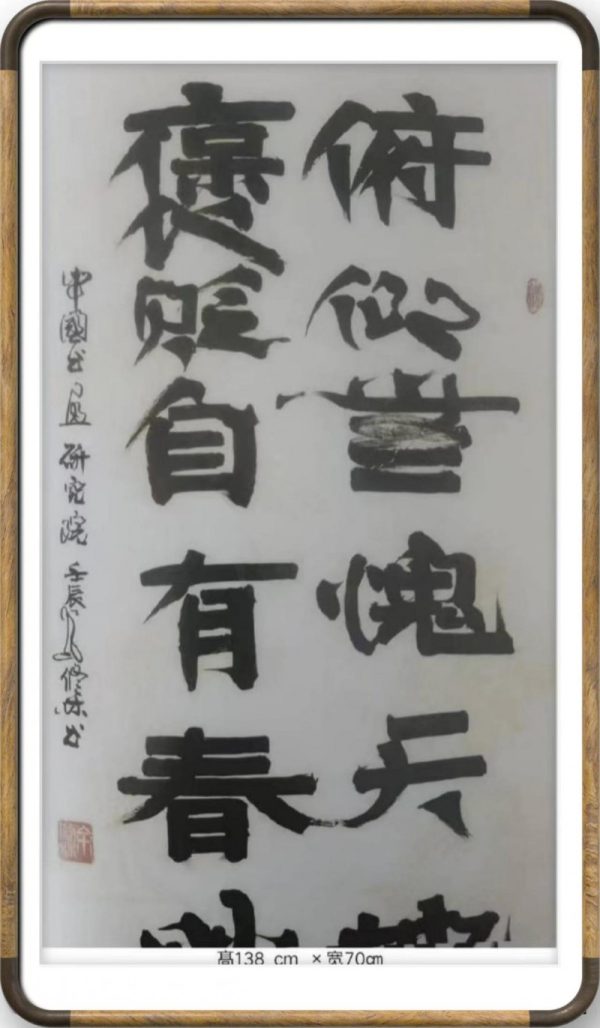 俯仰無愧天
褒貶自有春
中國书画研究院 壬辰 书
高138 cm ×宽70cm